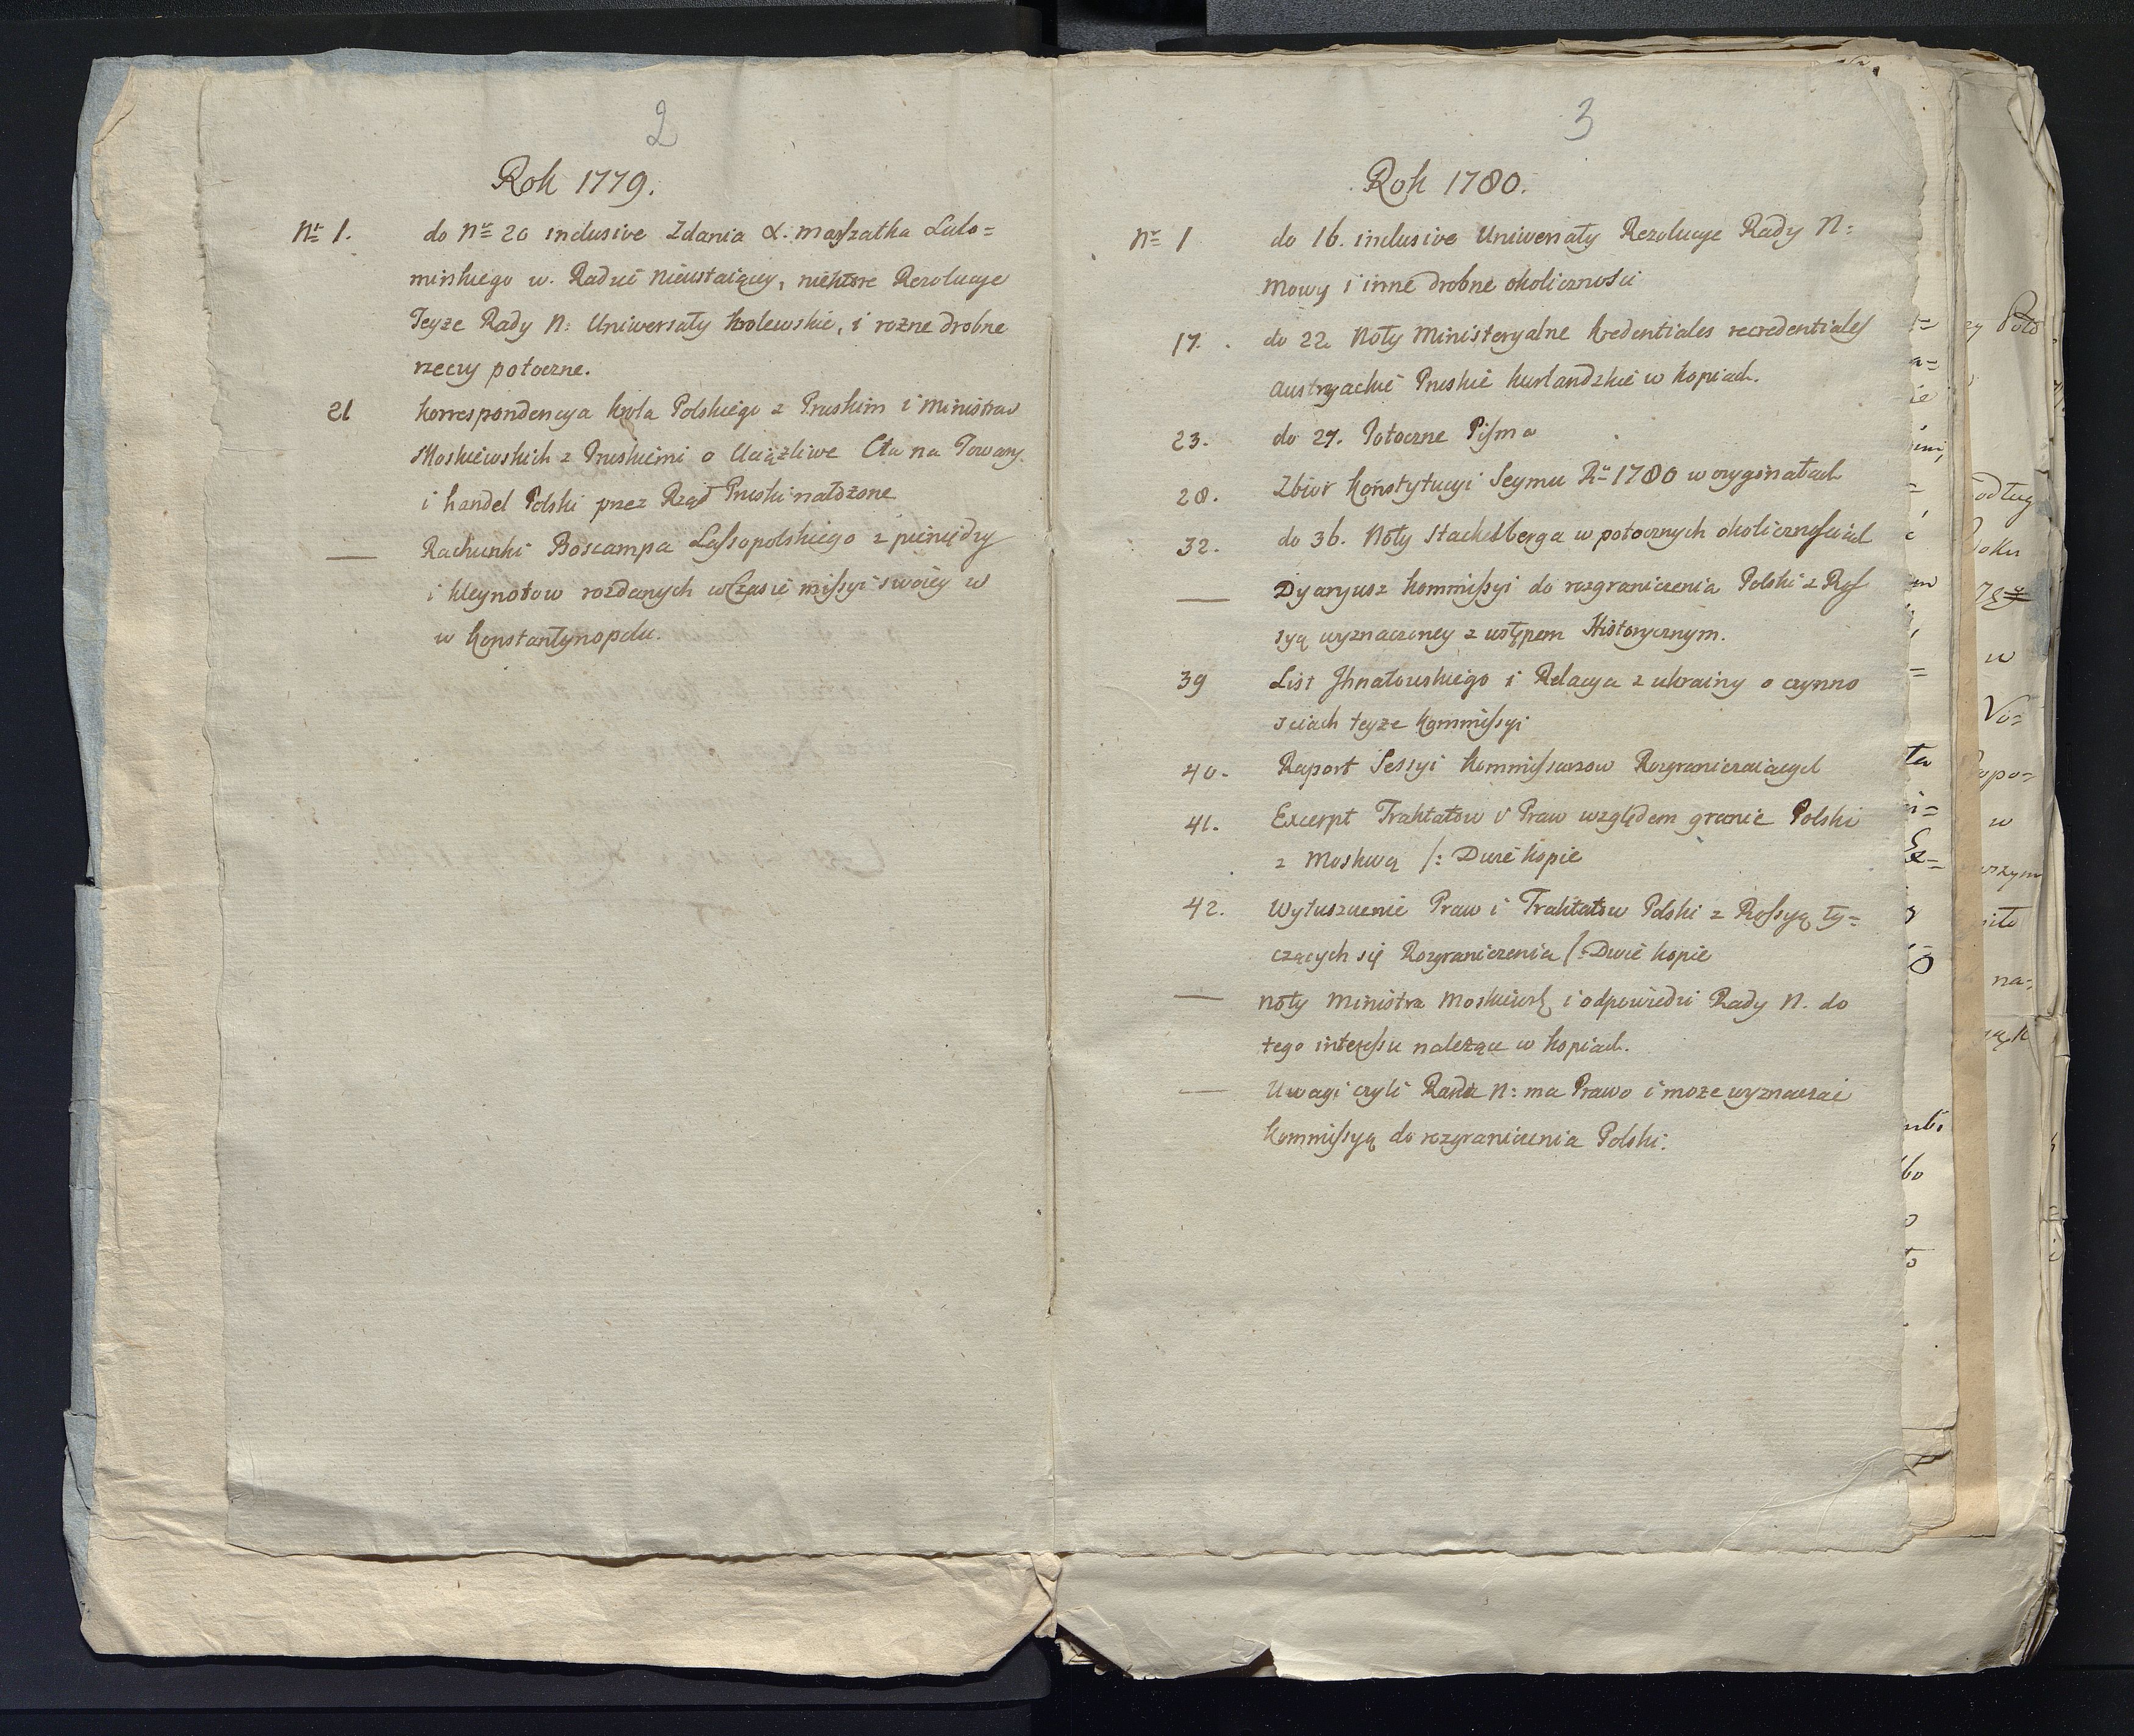 2
Rok 1779.
Nr 1. do Nr 20 inclusive Zdania X. Marszałka Lubo=
mirskiego w. Radzie Nieustaiącey, niektore Rezolucye
Teyze Rady N: Uniwersały Krolewskie, i rozne drobne
rzeczy potoczne.
21 Korrespondencya Krola Polskiego z Pruskim i Ministrow
Moskiewskich z Pruskiemi o Uciążliwe Cła na Towary
i handel Polski przez Rząd Pruski nałożone
— Rachunki Boscampa Lassopolskiego z pieniędzy
i kleynotow rozdanych w Czasie missyi swoiey w
w Konstantynopolu.
3
Rok 1780.
Nr 1 do 16. inclusive Uniwersały Rezolucye Rady N:
Mowy i inne drobne okoliczności
17. do 22. Noty Ministeryalne kredentiales recredentiales
Austryackie Pruskie kurlandzkie w kopiach.
23. do 27. Potoczne Pisma
28. Zbior Konstytucyi Seymu Ru 1780 w oryginałach
32. do 36. Noty Stackelberga w potocznych okolicznosciach
— Dyaryusz Kommissyi do rozgraniczenia Polski z Ros
syą wyznaczoney z wstępem Historycznym.
39 List Ihnatowskiego i Relacya z ukrainy o czynno
sciach teyze Kommissyi
40. Raport Sessyi Kommissarzow Rozgraniczaiących
41. Excerpt Traktatow i Praw względem granic Polski
z Moskwą /: Dwie kopie
42. Wyłuszczenie Praw i Traktatow Polski z Rossyą ty=
czących się Rozgraniczenia /: Dwie kopie
— Noty Ministra Moskiewsk i odpowiedzi Rady N. do
tego interessu nalezące w kopiach.
— Uwagi czyli Rada N: ma Prawo i moze wyznaczac
Kommissyą do rozgraniczenia Polski.